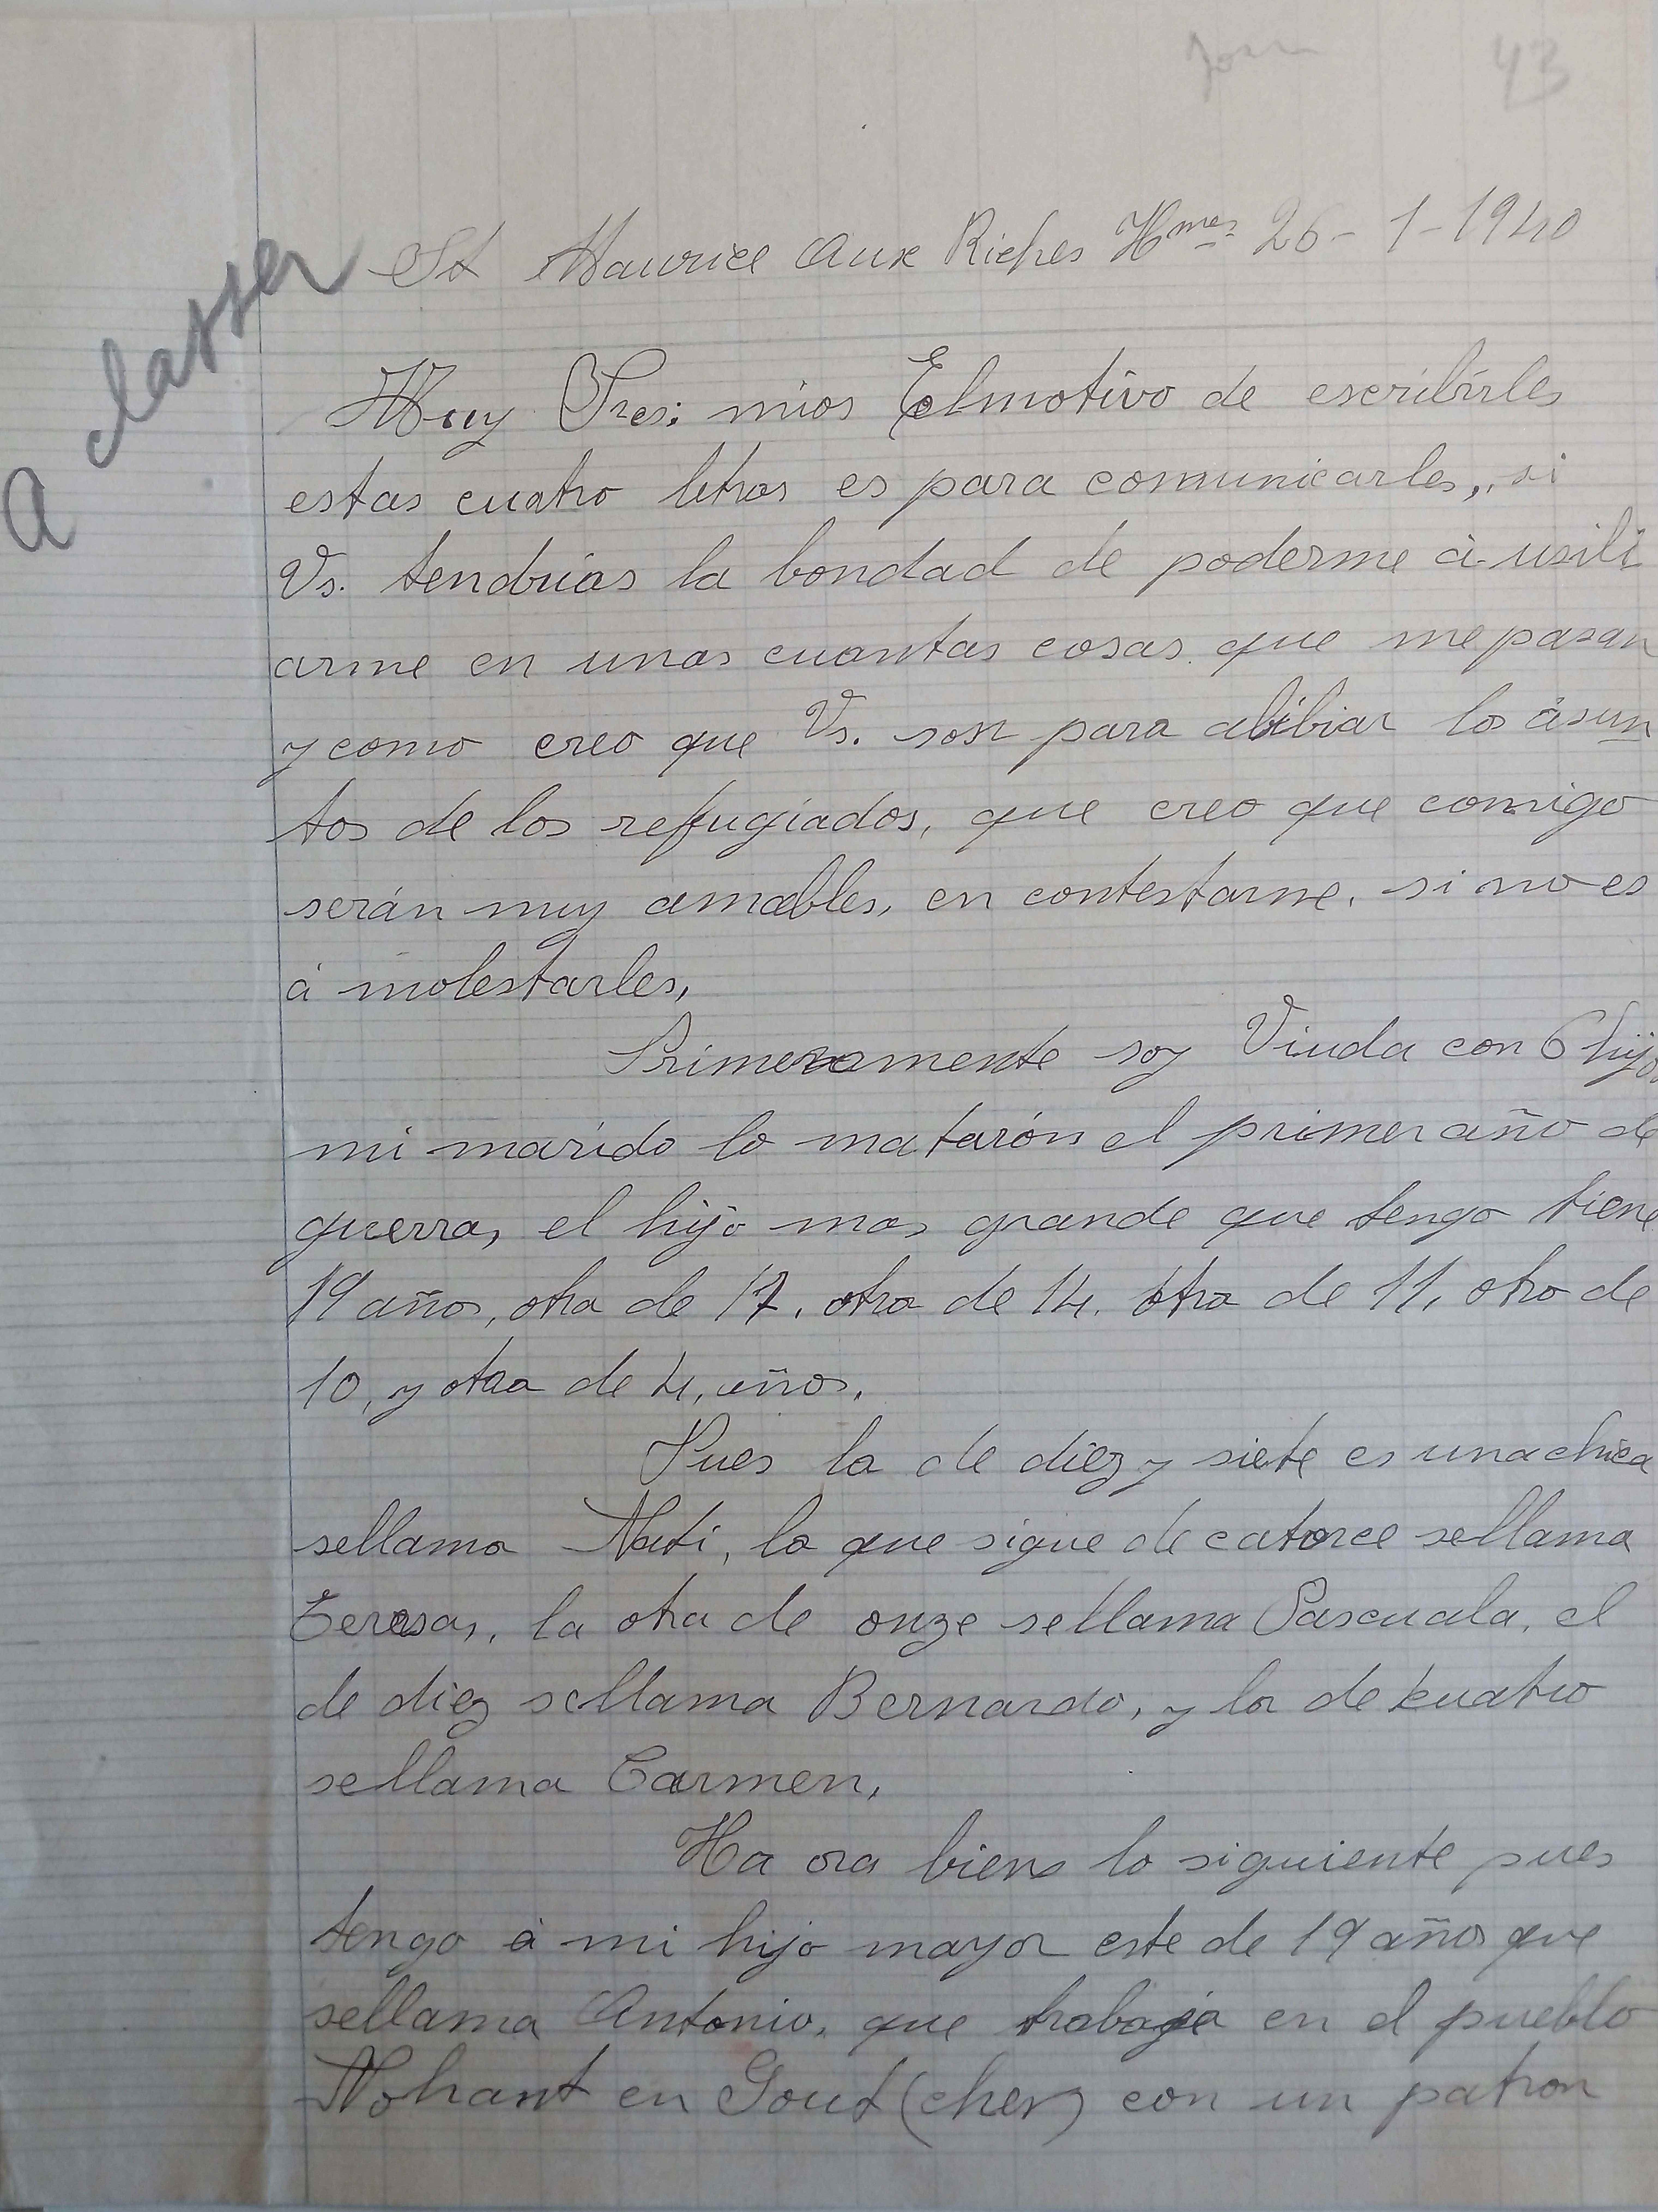 43
A classer
St Maurice aux Riches Hmes 26-1-1940
Muy Sres: mios El motivo de escribirles
estas cuatro letras es para comunicarles,, si
Vs. tendrias la bondad de poderme à usili
arme en unas cuantas cosas que me pasan
y como creo que Vs. son para alibiar los àsun
tos de los reffugiados, que creo que comigo
serán muy amables, en contestarme, si no es
à molestarles,
Primeramente soy Viuda con 6 hijos
mi marido lo matarón el primer año de
guerra, el hijo mas grande que tengo tiene
19 años, otra de 17, otra de 14, otra de 11, otro de
10, y otra de 4, años,
Pues la de diez y siete es una chica
sellama Nati, la que sigue de catorce sellama
Teresa, la otra de onze sellama Pascuala, el
de diez sellama Bernardo, y la de kuatro
sellama Carmen,
Ha ora bien lo siguiente pues
tengo à mi hijo mayor este de 19 años que
sellama Antonio, que trabaja en el pueblo
Nohant en Gout (cher) con un patron